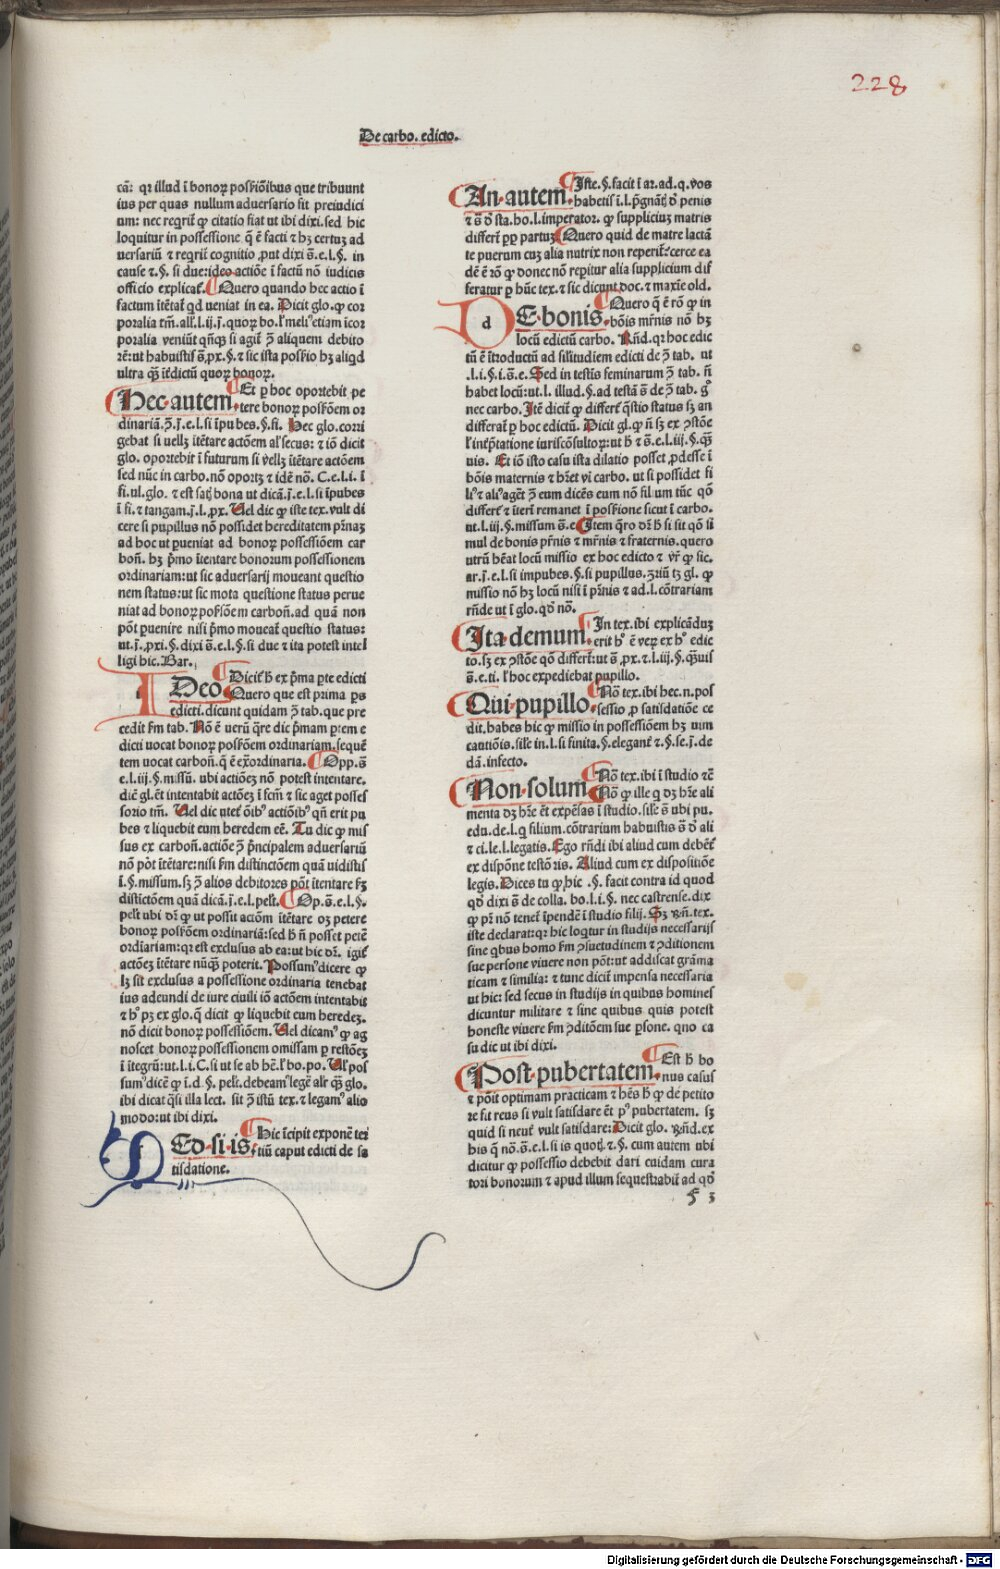 228
De carbo. edicto.
cā: qr illud ī bonoꝝ possiōibus que tribuunt
ius per quas nullum aduersario fit preiudici
um: nec reqrit ꝙ citatio fiat ut ibi dixi. sed hic
loquitur in possessione q̄ ē facti ⁊ hꝫ certuꝫ ad
uersariū ⁊ reqrit cognitio ,put dixi s̄.e.l.§. in
cause ⁊.§. si due: ideo actiōe ī factū nō iudicis
officio explicat̄. Quero quando hec actio ī
factum ītētat̄ qd ueniat in ea. Dicit glo. ꝙ cor
poralia tm̄. all.l.ij.j. quoꝝ bo. l' meli' etiam icor
poralia veniūt qn̄qꝫ si agit̄ ꝯ̄ aliquem debito
rē: ut habuistis s̄.px.§. ⁊ sic ista possio hꝫ aliqd
ultra qꝫ īt̄dictū quoꝝ bonoꝝ.
Hec autem. Et ꝑ hoc oportebit pe
tere bonoꝝ possōem or
dinariā.ꝯ̄.j.e.l. si īpubes.§. fi. Hec glo. corri
gebat si uellꝫ ītētare actōem al' secus: ⁊ iō dicit
glo. oportebit ī futurum si vellꝫ ītētare actōem
sed nūc in carbo. nō oportꝫ ⁊ idē nō. C.e.l.i. ī
fi. ul. glo. ⁊ est satꝫ bona ut dicā.j.e.l. si īpubes
ī fi. ⁊ tangam.j.l.px. Vel dic ꝙ iste tex. vult di
cere si pupillus nō possidet hereditatem pr̄naꝫ
ad hoc ut ꝑueniat ad bonoꝝ possessiōem car
boñ. hꝫ pͥmo ītentare bonorum possessionem
ordinariam: ut sic aduersarij moueant questio
nem status: ut sic mota questione status perue
niat ad bonoꝝ possōem carboñ. ad quā non
pōt ꝑuenire nisi pͥmo moueat̄ questio status:
ut.j.pxi.§. dixi s̄.e.l.§. si due ⁊ ita potest intel
ligi hic. Bar.
IDeo Dicit̄ h̄ ex pͥma ꝑte edicti
Quero que est prima ꝑs
edicti. dicunt quidam ꝯ̄ tab. que pre
cedit ẜm tab. Nō ē uerū qr̄e dic pͥmam ꝑtem e
dicti uocat bonoꝝ possōem ordinariam. sequē
tem uocat carboñ. q̄ ē exͣordinaria. Opp. s̄
e.l.iij.§. missū. ubi actiōeꝫ nō potest intentare.
dic̄ gl. ēt intentabit actōeꝫ ī fcm̄ ⁊ sic aget posses
sorio tm̄. Vel dic utet̄ oībꝰ actiōibꝰ qn̄ erit pu
bes ⁊ liquebit eum heredem eē. Tu dic ꝙ mis
sus ex carboñ. actiōe ꝯ̄ pͥncipalem aduersariū
nō pōt ītētare: nisi ẜm distinctōem quā uidistis
ī.§. missum. sꝫ ꝯ̄ alios debitores pōt ītentare ẜꝫ
distīctōem quā dicā.j.e.l. pest. Op. s̄.e.l.§.
pest ubi dr̄ ꝙ ut possit actōm ītētare oꝫ petere
bonoꝝ possōem ordinariā: sed h̄ n̄ posset petē
ordīariam: qr est exclusus ab ea: ut hic dr̄. igit̄
actōeꝫ ītētare nūqꝫ poterit. Possumꝰ dicere ꝙ
lꝫ sit exclusus a possessione ordinaria tenebat
ius adeundi de iure ciuili iō actōem intentabit
⁊ hꝰ pꝫ ex glo. q̄ dicit ꝙ liquebit eum heredeꝫ.
nō dicit bonoꝝ possessiōem. Vel dicamꝰ ꝙ ag
noscet bonoꝝ possessionem omissam ꝑ restōeꝫ
ī ītegrū: ut.l.i.C. si ut se ab hē. l' bo. po. Vl' pos
sumꝰ dicē ꝙ ī.d.§. pest. debeamꝰ legē alr̄ qꝫ glo.
ibi dicat q̄si illa lect. sit ꝯ̄ istū tex. ⁊ legamꝰ alio
modo: ut ibi dixi.
SEd si is Hic īcipit exponē ter
tiū caput edicti de sa
tisdatione.
An autem. Iste.§. facit ī ar. ad. q. vos
habetis ī.l. pͥgnāt̄ d̄ penis
⁊ s̄ d̄ sta. ho. l. imperator. ꝙ suppliciuꝫ matris
differt̄ ꝓp partuꝫ Quero quid de matre lactā
te puerum cuꝫ alia nutrix non reperit̄: certe ea
dē ē rō ꝙ donec nō reꝑitur alia supplicium dif
feratur ꝑ hūc tex. ⁊ sic dicunt doc. ⁊ maxīe old.
DE bonis. Quero q̄ ē rō ꝙ in
bōis mr̄nis nō hꝫ
locū edictū carbo. Rñd. qr hoc edic
tū ē ītroductū ad silitudiem edicti de ꝯ̄ tab. ut
.l.i.§.i.s̄.e. Sed in testīs feminarum ꝯ̄ tab. ñ
habet locū: ut.l. illud.§. ad testā s̄ de ꝯ̄ tab. gͦ
nec carbo. Itē dicit̄ ꝙ differt̄ q̄stio status sꝫ an
differat̄ ꝑ hoc edictū. Dicit gl. ꝙ ñ sꝫ ex ꝯstōe
l' īnt̄ptatione iuriscōsultoꝝ: ut h̄ ⁊ s̄.e.l.iij.§. qꝫ
uis. Et iō isto casu ista dilatio posset ꝓdesse ī
bōis maternis ⁊ hr̄et vī carbo. ut si possidet fi
lꝰ ⁊ aliꝰ aget̄ ꝯ̄ eum dicēs eum nō fil um tūc qō
differt̄ ⁊ iteri remanet ī possiōne sicut ī carbo.
ut.l.iij.§. missum s̄.e Item q̄ro dr̄ h̄ si sit qō si
mul de bonis pr̄nis ⁊ mr̄nis ⁊ fraternis. quero
utrū hēat locū missio ex hoc edicto ⁊ vr̄ ꝙ sic.
ar.j.e.l. si impubes.§. si pupillus. ꝯriū tꝫ gl. ꝙ
missio nō hꝫ locū nisi ī pr̄nis ⁊ ad.l. cōtrariam
rñde ut ī glo. qō nō.
Ita demum. In tex. ibi explicādūꝫ
erit hꝰ ē veꝝ ex hꝰ edic
to. sꝫ ex ꝯstōe qō differt̄: ut s̄ .px. ⁊.l.iij.§. qꝫuis
s̄.e.ti. l' hoc expediebat pupillo.
Qui pupillo. Nō tex. ibi hec. n. pos
sessio ꝓ satisdatiōe ce
dit. habes hic ꝙ missio in possessiōem hꝫ uim
cautiōis. sile in.l. si finita.§. elegant̄ ⁊.§. se.j. de
dā. infecto.
Non solum Nō tex. ibi ī studio ⁊cē
Nō ꝙ ille q dꝫ hr̄e ali
menta dꝫ hr̄e ēt expēsas ī studio. sile s̄ ubi pu.
edu. de.l. q filium. cōtrarium habuistis s̄ d̄ ali
⁊ ci. le.l. legatis. Ego rñdi ibi aliud cum debēt̄
ex dispōne testōris. Aliud cum ex dispositiōe
legis. Dices tu ꝙ hic .§. facit contra id quod
qō dixi s̄ de colla. bo.l.i.§. nec castrense. dix
ꝙ pr̄ nō tenet̄ īpendē ī studio filij. Sꝫ Rñ. tex.
iste declarat̄: qr hic loqtur in studijs necessarijs
sine qbus homo ẜm ꝯsuetudinem ⁊ ꝯditionem
sue persone viuere non pōt: ut addiscat grāma
ticam ⁊ similia: ⁊ tunc dicit̄ impensa necessaria
ut hic: sed secus in studijs in quibus homines
dicuntur militare ⁊ sine quibus quis potest
honeste viuere ẜm ꝯditōem sue ꝑsone. qno ca
su dic ut ibi dixi.
Post pubertatem. Est h̄ bo
nus casus
⁊ pōit optimam practicam ⁊ hēs h̄ ꝙ de petito
re fit reus si vult satisdare ēt pꝰ pubertatem. sꝫ
quid si neut̄ vult satisdare: Dicit glo. Rñd. ex
his q̄ nō. s̄.e.l. si is quotꝫ ⁊.§. cum autem ubi
dicitur ꝙ possessio debebit dari cuidam cura
tori bonorum ⁊ apud illum sequestrabit̄ ad qō
ſ 3
Digitalisierung gefördert durch die Deutsche Forschungsgemeinschaft - DFG